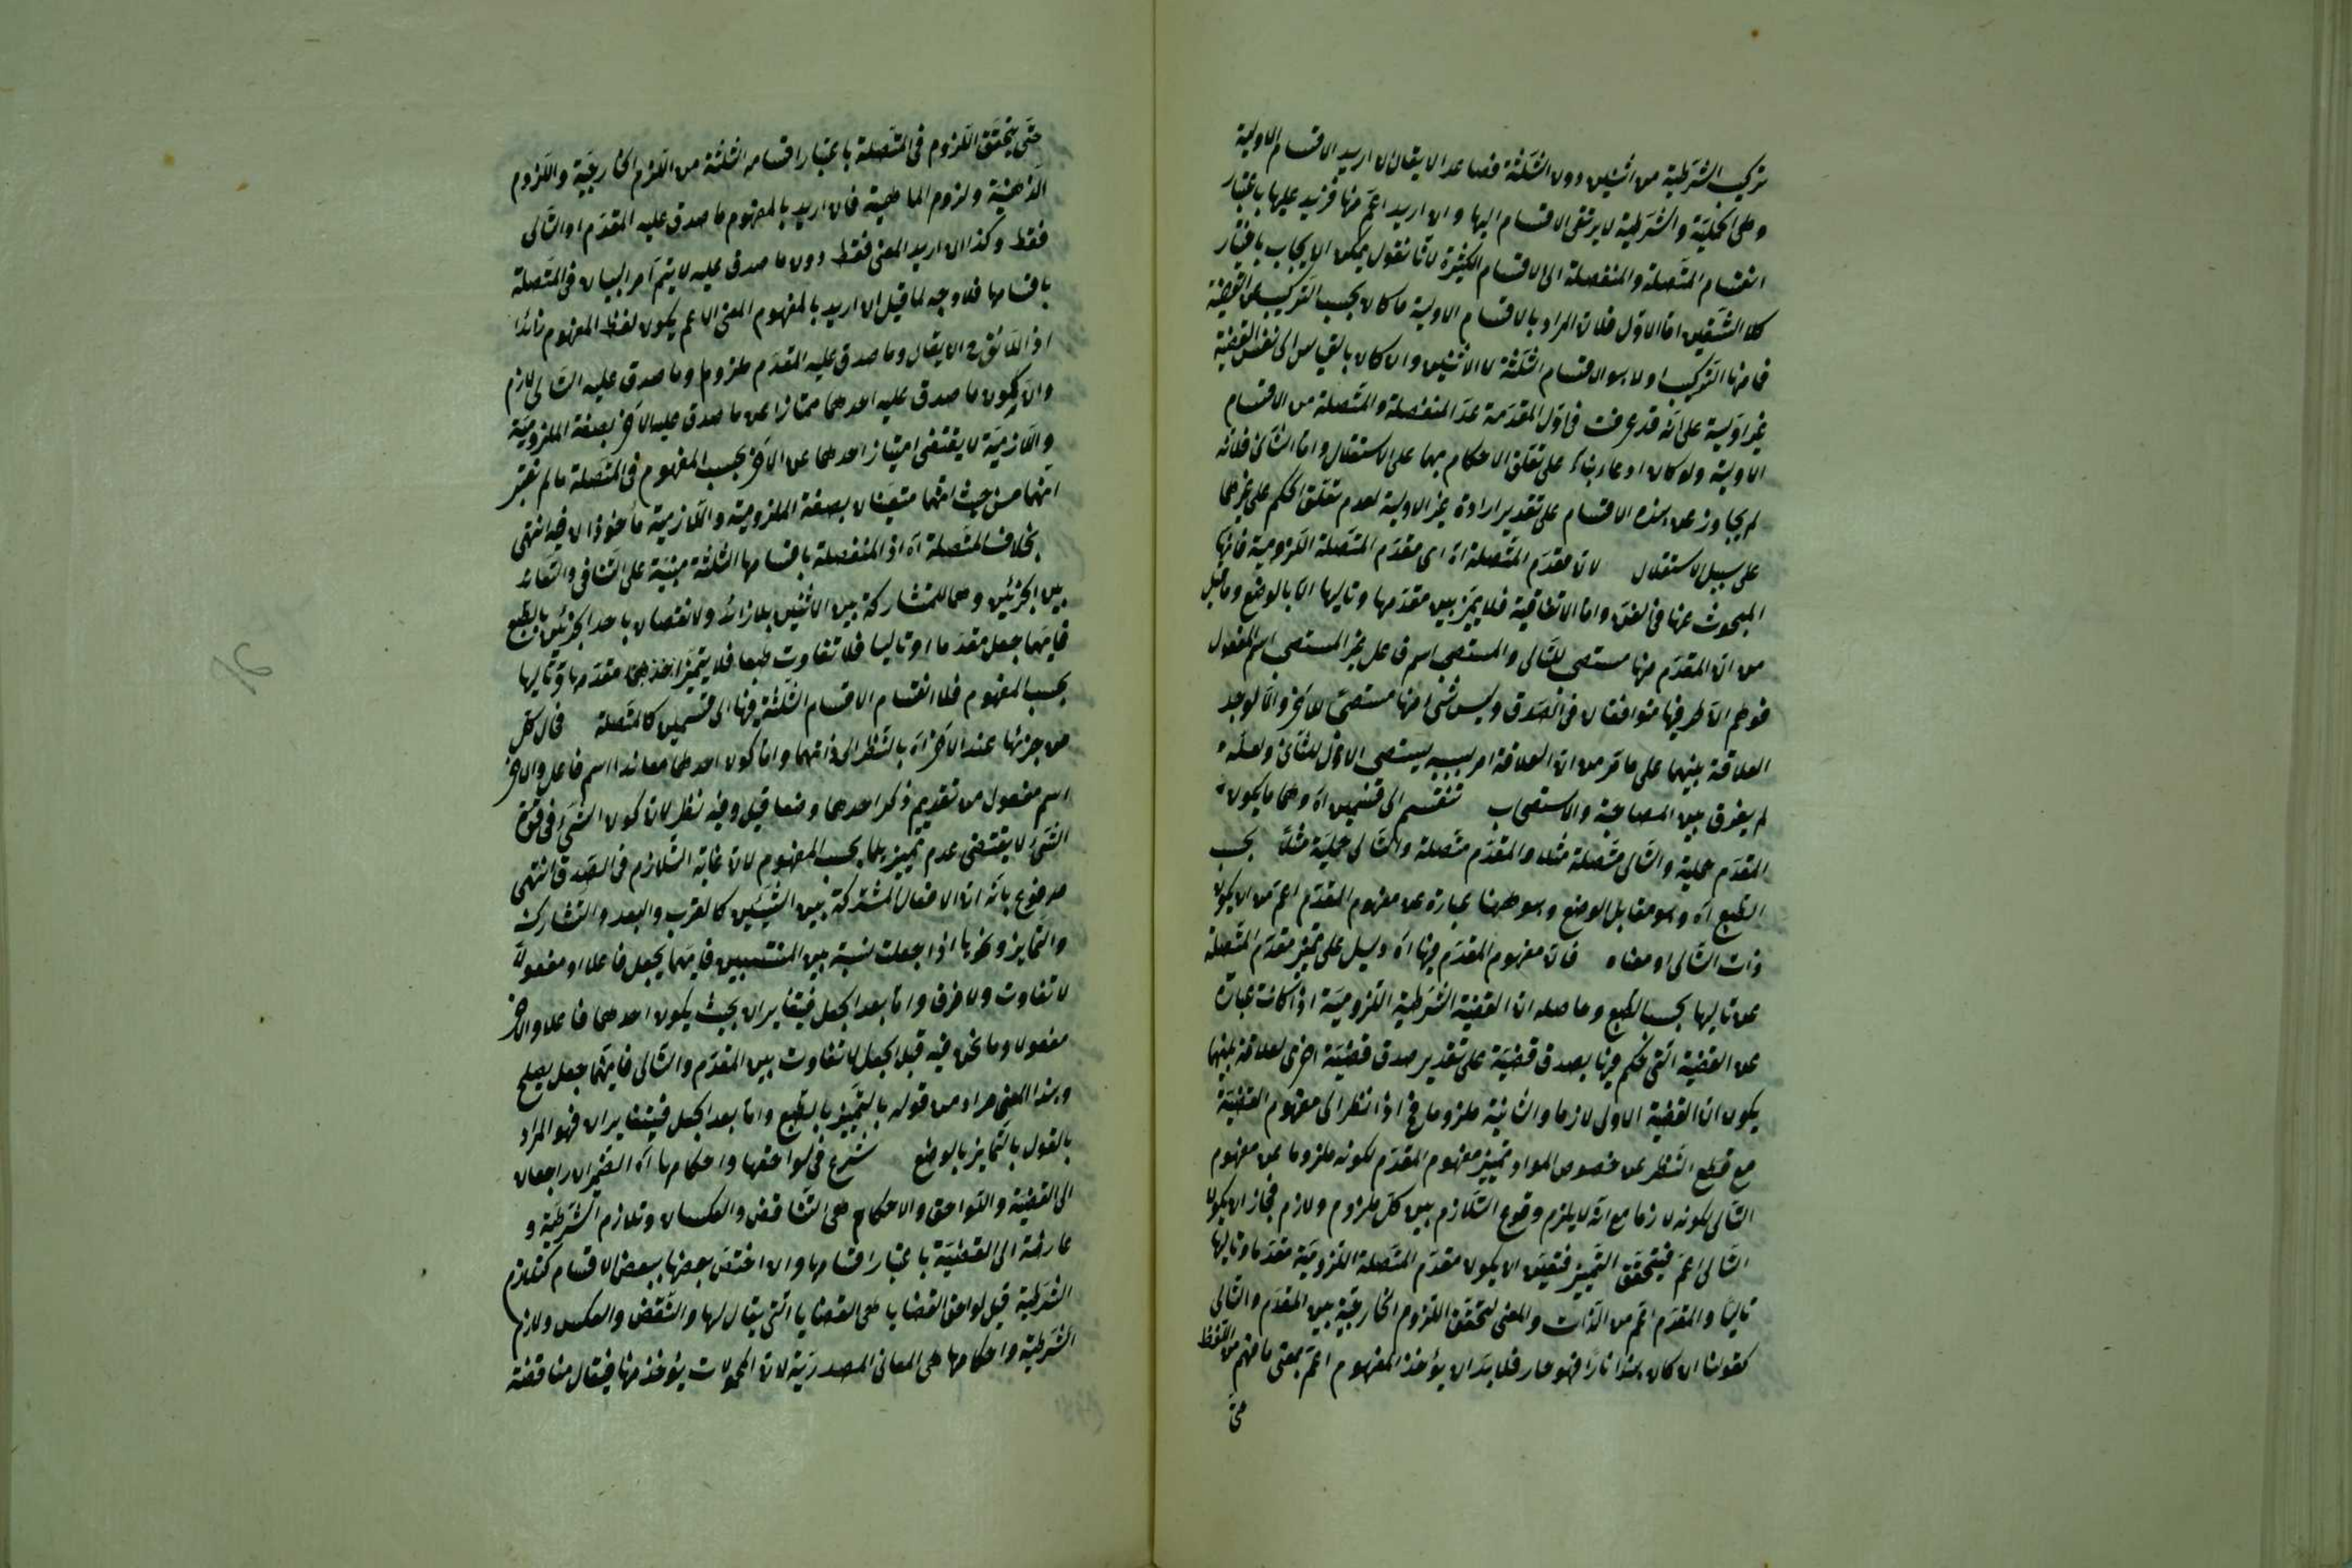 تركيب الشرطية من اثنين دون الثلثة فصاعدا لا يقال ان اريد الاقسام الاولية
وهى الحملية والشرطية لا يرتقى الاقسام اليها وان اريد اعم منها فزيد عليها باعتبار
انقسام المتصلة والمنفصلة الى الاقسام الكثيرة لانا نقول يمكن الايجاب باختيار
كلا الشقين اما الاول فلان المراد بالاقسام الاولية ما كان بحسب التركيب من القضية
فما منها التركيب اولا هو الاقسام الثلثة لا الاثنين وان كان بالقياس الى نفس القضية
غير اولية على انه قد عرفت فى اول المقدمة عد المنفصلة والمتصلة من الاقسام
الاولية ولو كان ادعاء بناء على تعلق الاحكام بهما على الاستقلال واما الثانى فلانه
لم يجاوز عن هذه الاقسام على تقدير ارادة غير الاولية لعدم تعلق الحكم على غيرها
على سبيل الاستقلال لان مقدم المتصلة اه اى مقدم المتصلة اللزومية فانها
المبحوث عنها فى الفن واما الاتفاقية فلا يميز بين مقدمها وتاليها الا بالوضع وما قيل
من ان المقدم منها مستصحب للتالى والمستصحب اسم فاعل غير المستصحب اسم المفعول
فوهم اذ طرفيها متوافقان فى الصدق وليس شئ منها مستصحب للاخر والا لوجد
العلاقة بينهما على ما قر من ان العلاقة امر بسببه يستصحب الاول للثانى ولعله
لم يفرق بين المصاحبة والاستصحاب تنقسم الى قسمين اه وهما ما يكون
المقدم حملية والتالى متصلة مثلا والمقدم متصلة والتالى حملية مثلا بحسب
الطبع اه وهو مقابل الوضع وهو ههنا عبارة عن مفهوم المقدم اعم من ان يكون
ذات التالى او معناه فان مفهوم المقدم فيها اه دليل على تميز مقدم المتصلة
عن تاليها بحسب الطبع وحاصله ان القضية الشرطية اللزومية اذا كانت عبارة
عن القضية التى حكم فيها بصدق قضية على تقدير صدق قضية اخرى لعلاقة بينهما
يكون ان القضية الاولى لازما والثانية ملزوما فح اذا نظر الى مفهوم القضية
مع قطع النظر عن خصوص المواد تميز مفهوم المقدم لكونه ملزوما عن مفهوم
التالى لكونه لازما مع انه لا يلزم وقوع التلازم بين كل ملزوم ولازم فجاز ان يكون
التالى اعم فيتحقق التميز فتعين ان يكون مقدم المتصلة اللزومية مقدما وتاليها
تاليا والمقدم اعم من الذات والمعنى لتحقق اللزوم الخارجية بين المقدم والتالى
كقولنا ان كان هذا نارا فهو حار فلا بد ان يؤخذ المفهوم اعم بمعنى ما فهم من اللفظ
حتى
حتى يتحقق اللزوم فى المتصلة باعتبار اقسامه الثلثة من اللزوم الخارجية واللزوم
الذهنية ولزوم الماهية فان اريد بالمفهوم ما صدق عليه المقدم او التالى
فقط وكذا ان اريد المعنى فقط دون ما صدق عليه لا يتم امر البيان فى المتصلة
باقسامها فلا وجه لما قيل ان اريد بالمفهوم المعنى الاعم يكون لفظ المفهوم زائدا
اذ اللائق ح ان يقال وما صدق عليه المقدم ملزوم وما صدق عليه التالى لازم
والا يكون ما صدق عليه احدهما ممتازا عن ما صدق عليه الاخر بصفة الملزومية
واللازمية لا يقتضى امتياز احدهما عن الاخر بحسب المفهوم فى المتصلة ما لم تعتبر
انهما من حيث انهما متعينان بصفة الملزومية واللازمية مأخوذان فيه انتهى
بخلاف المتصلة اه اذ المنفصلة باقسامها الثلثة مبنية على التنافى والتعاند
بين الجزئين وهما للمشاركة بين الاثنين بلا زائد ولا نقصان باحد الجزئين بالطبع
فايهما جعل مقدما او تاليا فلا تفاوت طبعا فلا يتميز احدهما مقدمها وتاليها
بحسب المفهوم فلا انقسام الاقسام الثلثة فيها الى قسمين كالمتصلة فان كل
من جزئها عند الاخر اه بالنظر الى ذاتهما واما كون احدهما معاندا اسم فاعل والاخر
اسم مفعول من تقديم ذكر احدهما وضعا قيل وفيه نظر لان كون الشئ فى قوة
الشئ لا يقتضى عدم تميزهما بحسب المفهوم لان غايته التلازم فى الصدق انتهى
مدفوع بانه ان الافعال المشتركة بين الشيئين كالقرب والبعد والتشارك
والتمايز ونحوها اذا جعلت نسبة بين المنتسبين فايهما يجعل فاعلا او مفعولا
لا تفاوت ولا فرق واما بعد الجعل فيتغايران بحيث يكون احدهما فاعلا والاخر
مفعولا وما نحن فيه قبل الجعل لا تفاوت بين المقدم والتالى فايهما جعل يصلح
وهذا المعنى مراد من قوله بالتميز بالطبع واما بعد الجعل فيتغايران فهو المراد
بالقول بالتمايز بالوضع شرع فى لواحقها واحكامها اه الضميران راجعان
الى القضية واللواحق والاحكام هى التناقض والعكسان وتلازم الشرطية و
عارضة الى القضية باعتبار اقسامها وان اختص بعضها ببعض الاقسام كتلازم
الشرطية قيل لواحق القضايا هى القضايا التى يقال لها والنقض والعكس ولازم
الشرطية واحكامها هى المعانى المصدرية لان المحمولات يؤخذ منها فيقال مناقضة